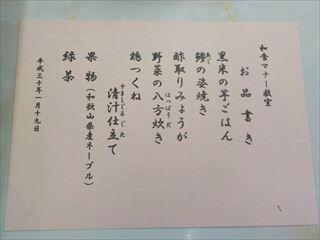 和食マナー教室
お品書き
黒米の芋ごはん
鯵の姿焼き
あじ
酢取りみょうが
野菜の八方炊き
はっぽうだ
鶏つくね
清汁仕立て
すましじるじた
果物(和歌山県産ネーブル)
緑茶
平成三十年一月十九日